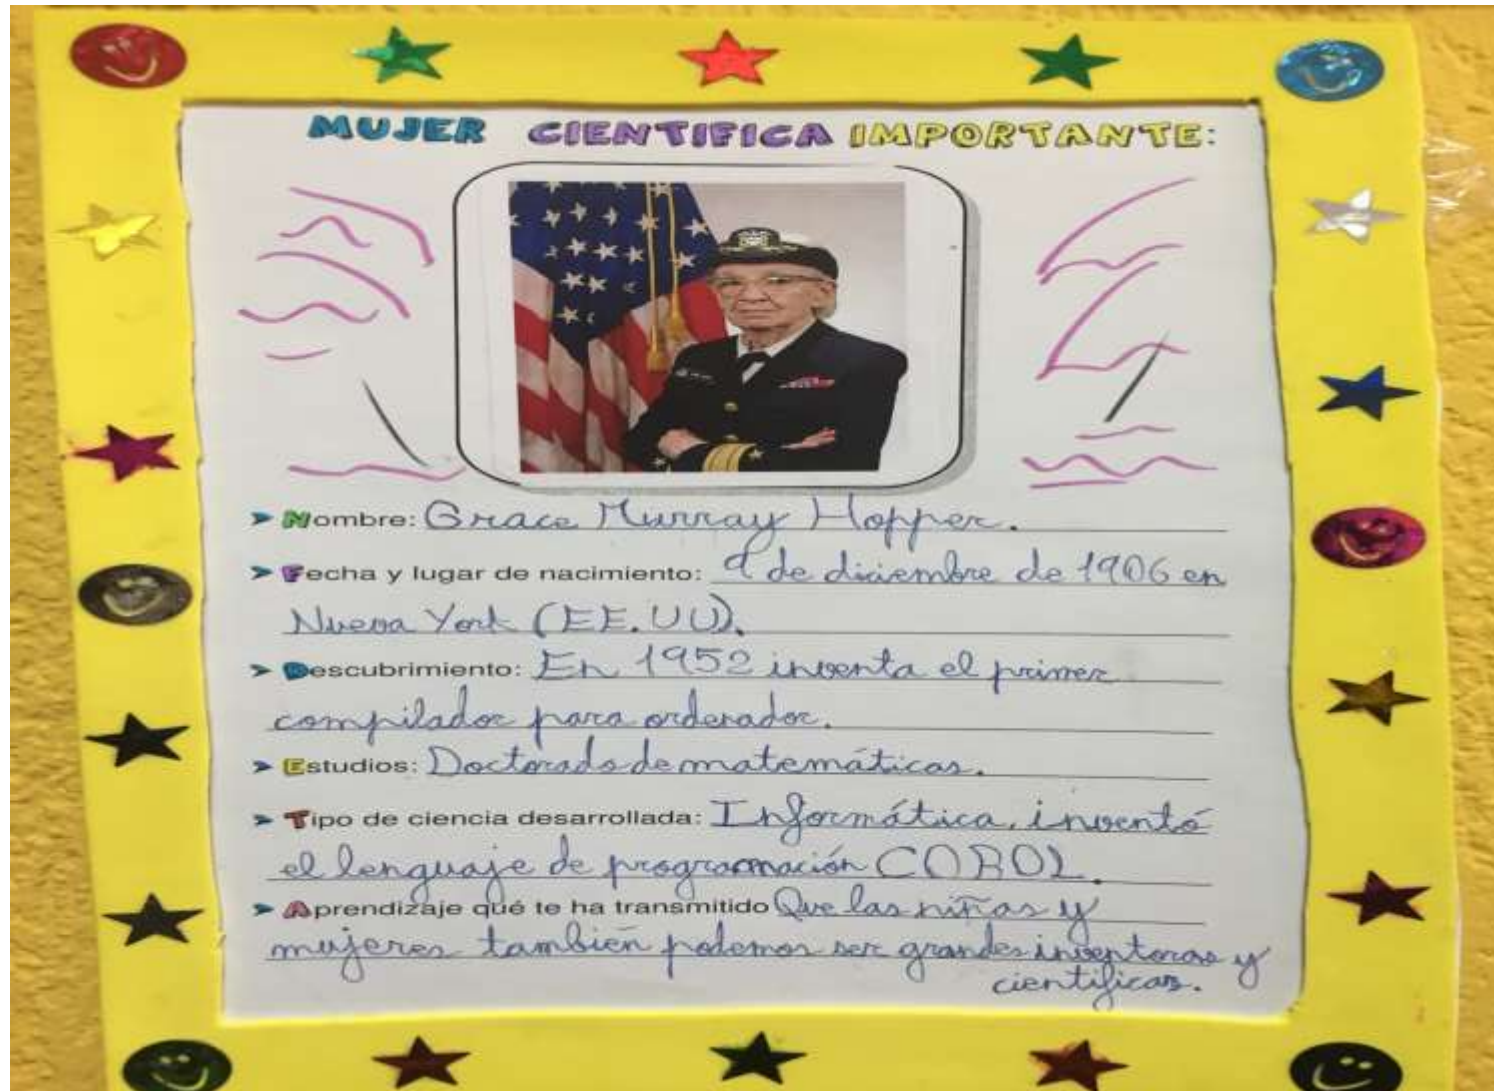 MUJER CIENTIFICA IMPORTANTE:
Nombre: Grace Murray Hopper.
Fecha y lugar de nacimiento: 9 de diciembre de 1906 en
Nueva York (EE.UU).
Descubrimiento: En 1952 inventa el primer
compilador para ordenador.
Estudios: Doctorado de matemáticas.
Tipo de ciencia desarrollada: Informática, inventó
el lenguaje de programación COBOL.
Aprendizaje qué te ha transmitido Que las niñas y
mujeres también podemos ser grandes inventoras y
científicas.